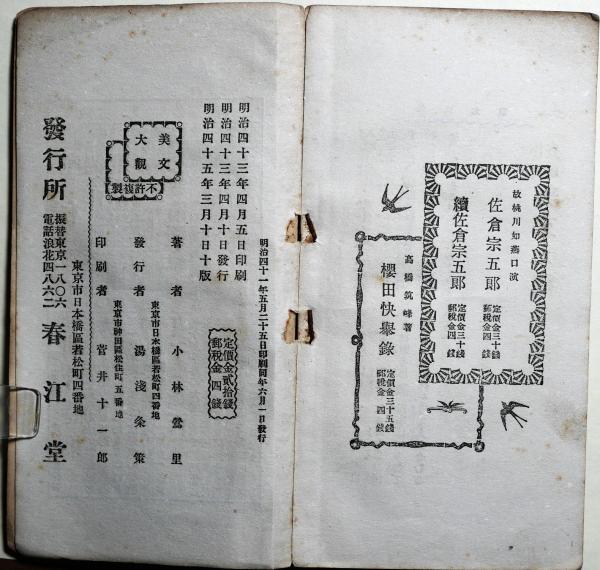 故桃川如燕口演
佐倉宗五郎
定價金三十錢
郵税金四錢
續佐倉宗五郎
定價金三十錢
郵税金四錢
高橋筑峰著
櫻田快擧錄
定價金三十五錢
郵税金四錢
明治四十一年五月二十五日印刷同年六月一日發行
明治四十三年四月五日印刷
明治四十三年四月十日發行
明治四十五年三月十日十版
定價金貳拾錢
郵税金四錢
美文
大觀
不許複製
著者 小林鶯里
東京市日本橋區若松町四番地
發行者 湯淺粂策
東京市神田區松住町五番地
印刷者 菅井十一郎
東京市日本橋區若松町四番地
發行所 春江堂
振替東京一八〇六
電話浪花四八六二